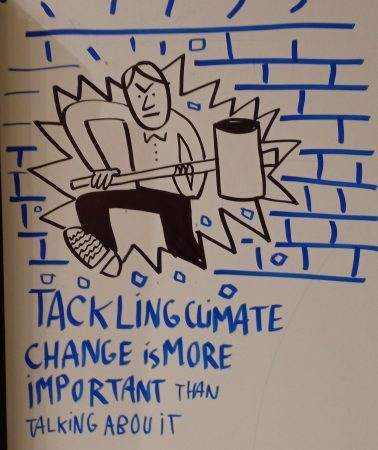 TACKLING CLIMATE
CHANGE is MORE
iMPORTANT THAN
TALKING ABOU iT